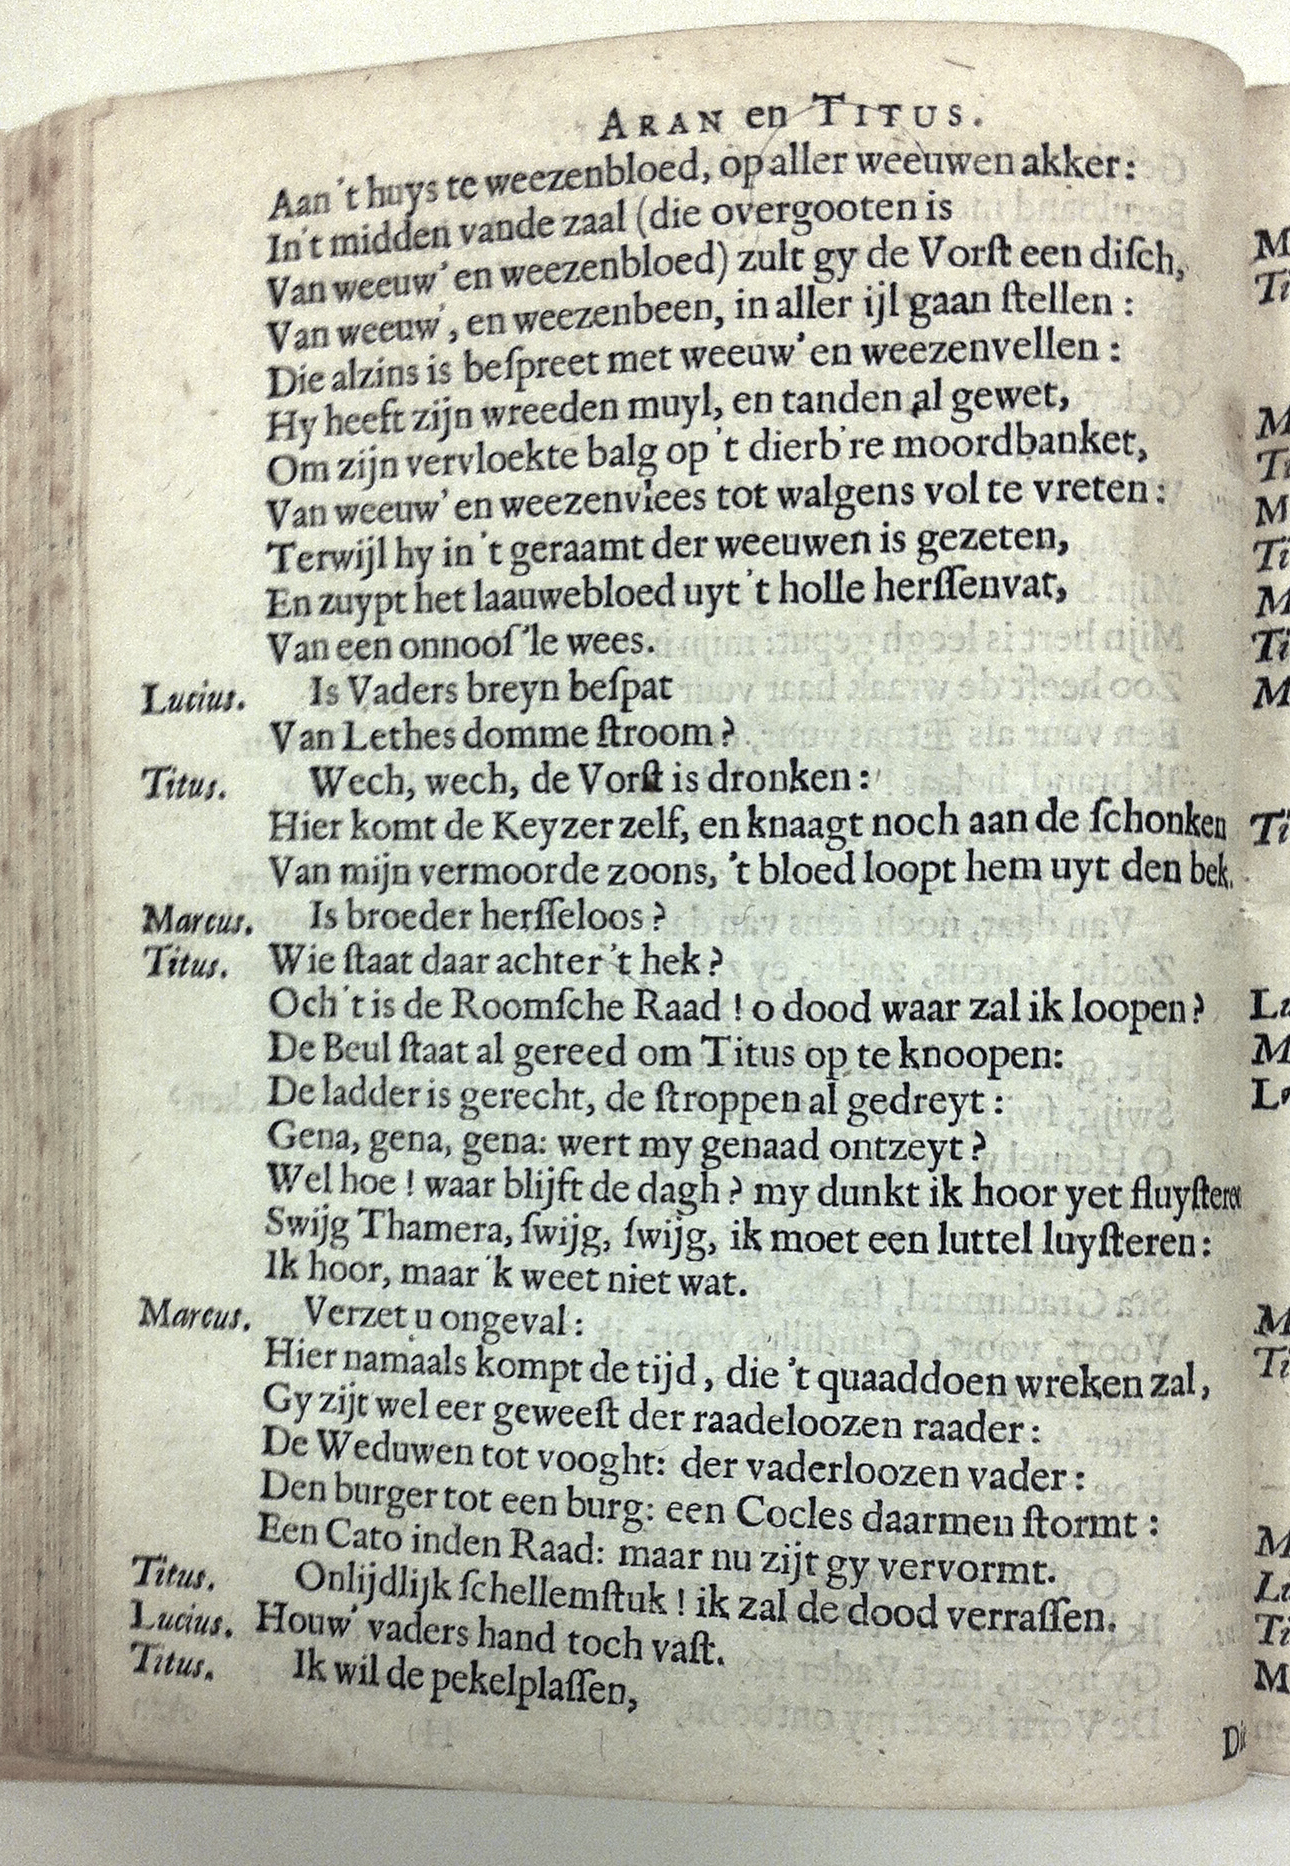 ARAN en TITUS.
Aan 't huys te weezenbloed, op aller weeuwen akker:
In't midden vande zaal (die overgooten is
Van weeuw' en weezenbloed) zult gy de Vorſt een diſch,
Van weeuw', en weezenbeen, in aller ijl gaan ſtellen :
Die alzins is beſpreet met weeuw' en weezenvellen :
Hy heeft zijn wreeden muyl, en tanden al gewet,
Om zijn vervloekte balg op 't dierb're moordbanket,
Van weeuw' en weezenvlees tot walgens vol te vreten:
Terwijl hy in 't geraamt der weeuwen is gezeten,
En zuypt het laauwebloed uyt 't holle herſſenvat,
Van een onnooſ'le wees.
Lucius. Is Vaders breyn beſpat
Van Lethes domme ſtroom ?
Titus. Wech, wech, de Vorſt is dronken :
Hier komt de Keyzer zelf, en knaagt noch aan de ſchonken
Van mijn vermoorde zoons, 't bloed loopt hem uyt den bek.
Marcus. Is broeder herſſeloos ?
Titus. Wie ſtaat daar achter 't hek ?
Och 't is de Roomſche Raad ! o dood waar zal ik loopen ?
De Beul ſtaat al gereed om Titus op te knoopen:
De ladder is gerecht, de ſtroppen al gedreyt :
Gena, gena, gena: wert my genaad ontzeyt ?
Wel hoe ! waar blijft de dagh ? my dunkt ik hoor yet fluyſteren
Swijg Thamera, ſwijg, ſwijg, ik moet een luttel luyſteren :
Ik hoor, maar 'k weet niet wat.
Marcus. Verzet u ongeval :
Hier namaals kompt de tijd, die 't quaaddoen wreken zal,
Gy zijt wel eer geweeſt der raadeloozen raader :
De Weduwen tot vooght: der vaderloozen vader :
Den burger tot een burg: een Cocles daarmen ſtormt :
Een Cato inden Raad: maar nu zijt gy vervormt.
Titus. Onlijdlijk ſchellemſtuk ! ik zal de dood verraſſen.
Lucius. Houw' vaders hand toch vaſt.
Titus. Ik wil de pekelplaſſen,